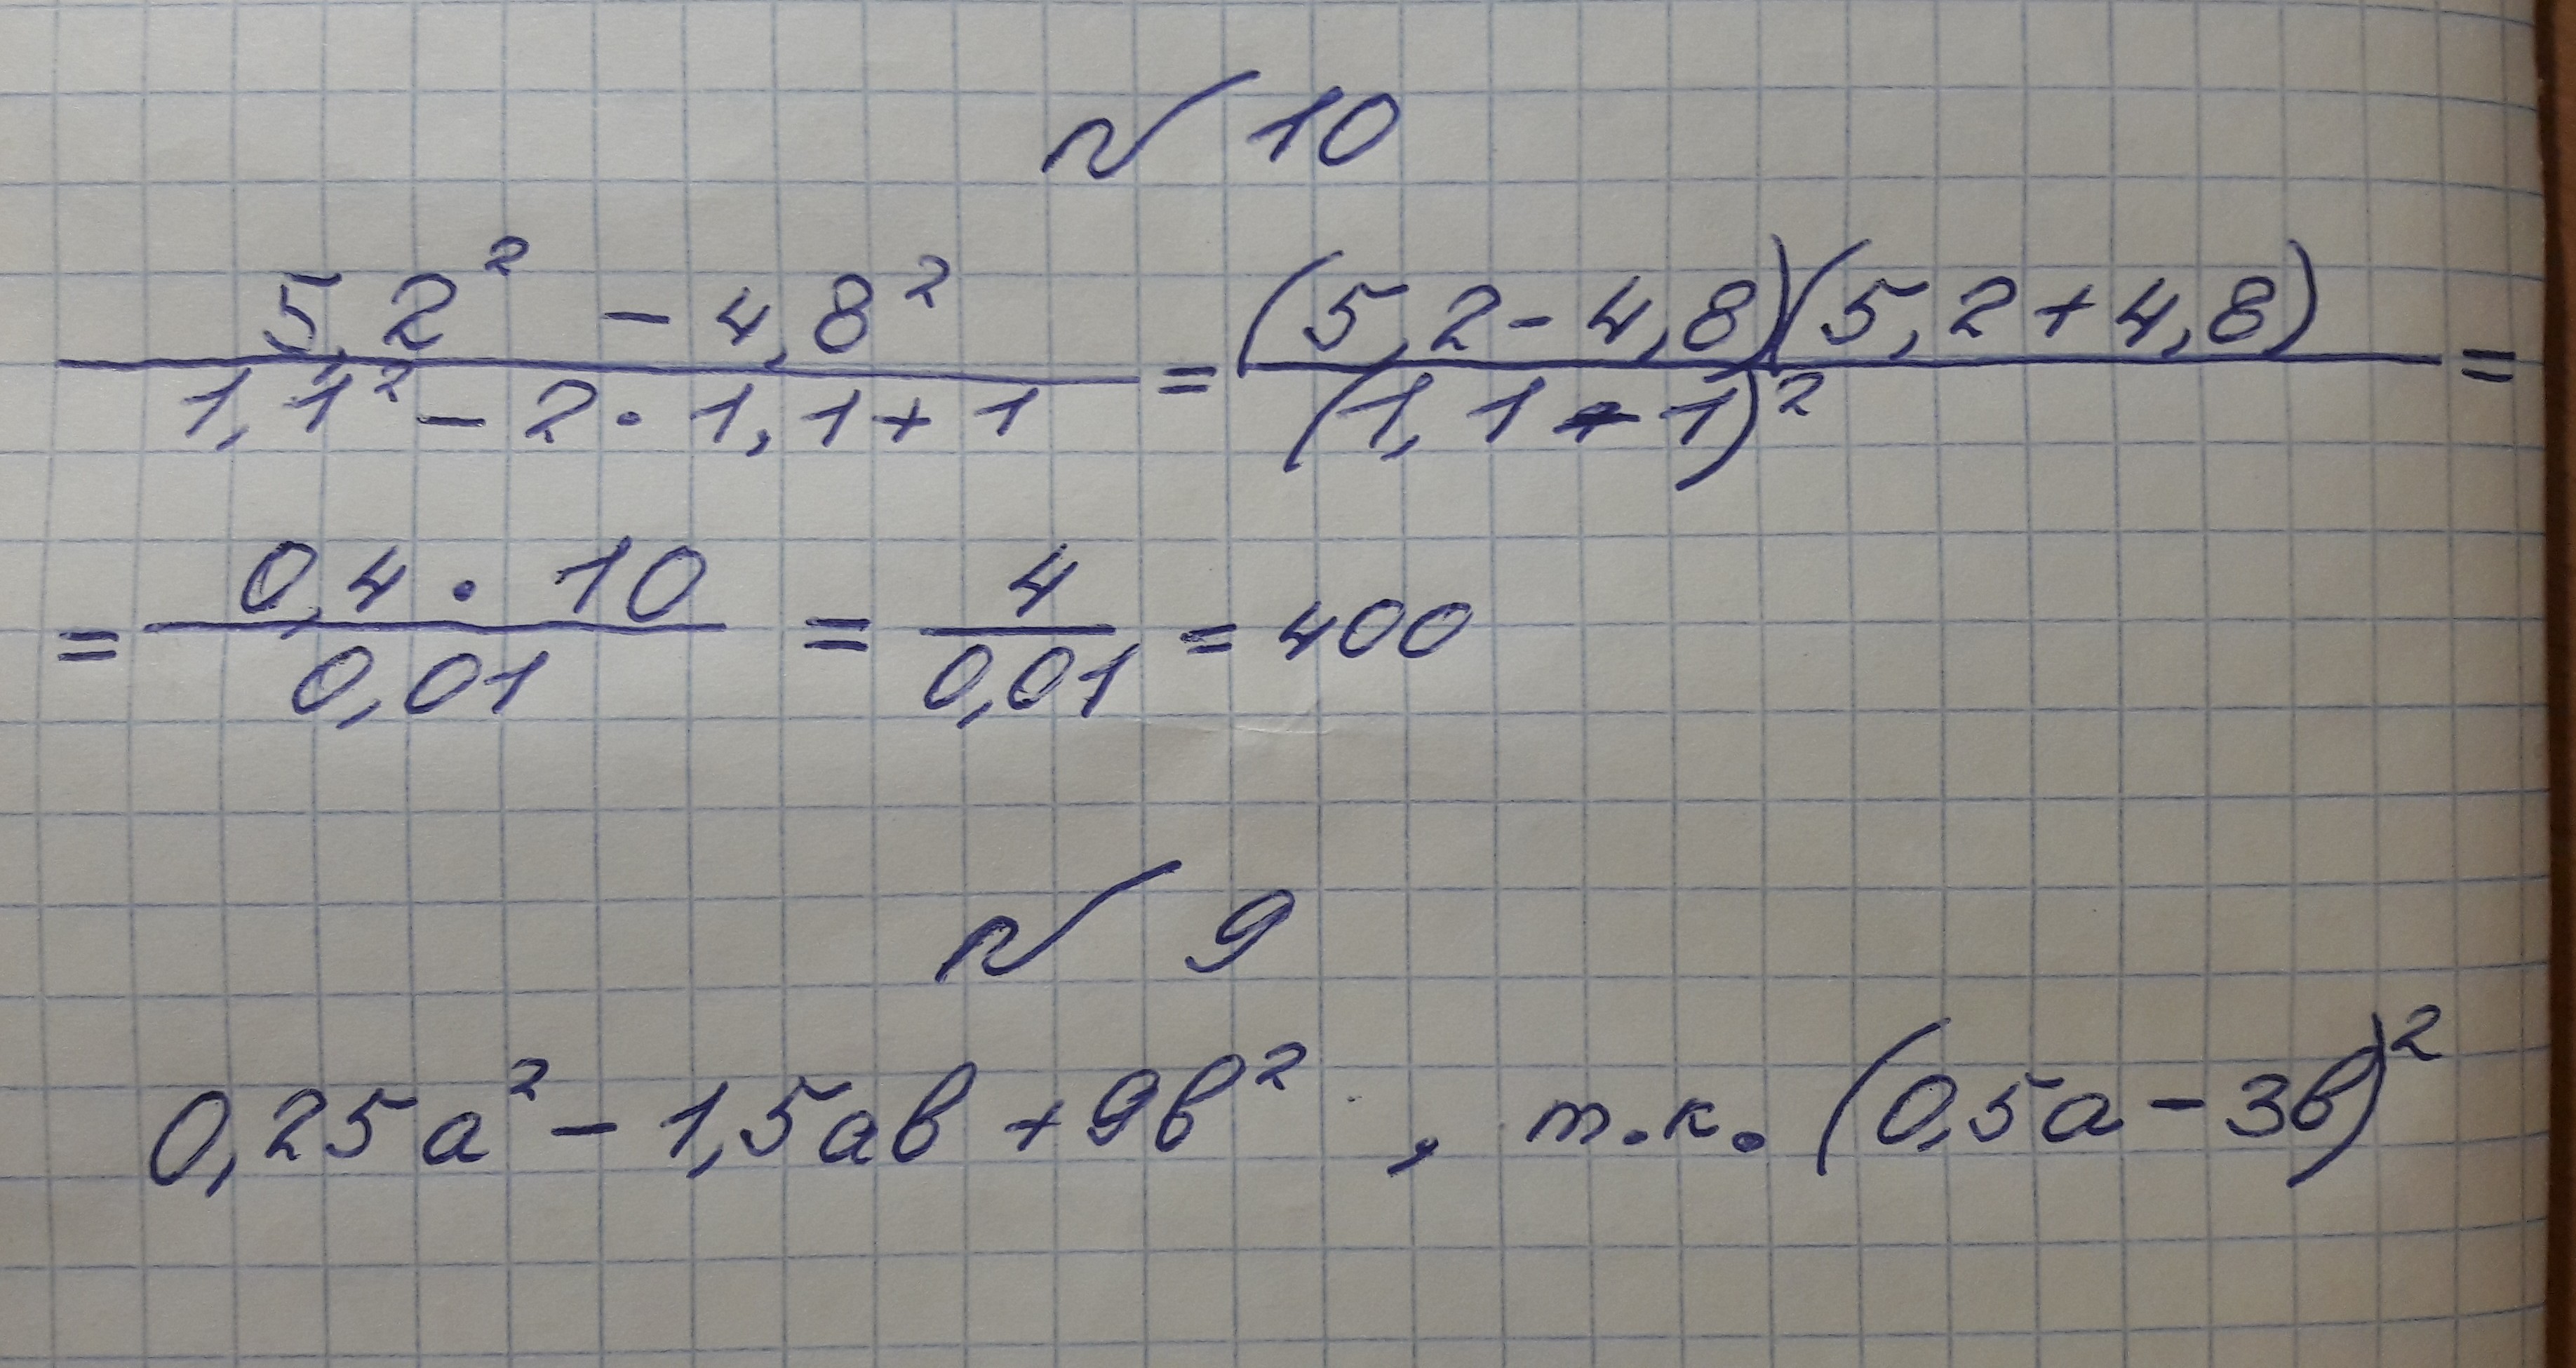 № 10
(5,2² - 4,8²)/(1,1² - 2 · 1,1 + 1) = ((5,2 - 4,8)(5,2 + 4,8))/((1,1 - 1)²) =
= (0,4 · 10)/(0,01) = 4/(0,01) = 400
№ 9
0,25a² - 1,5ab + 9b² , т.к. (0,5a - 3b)²